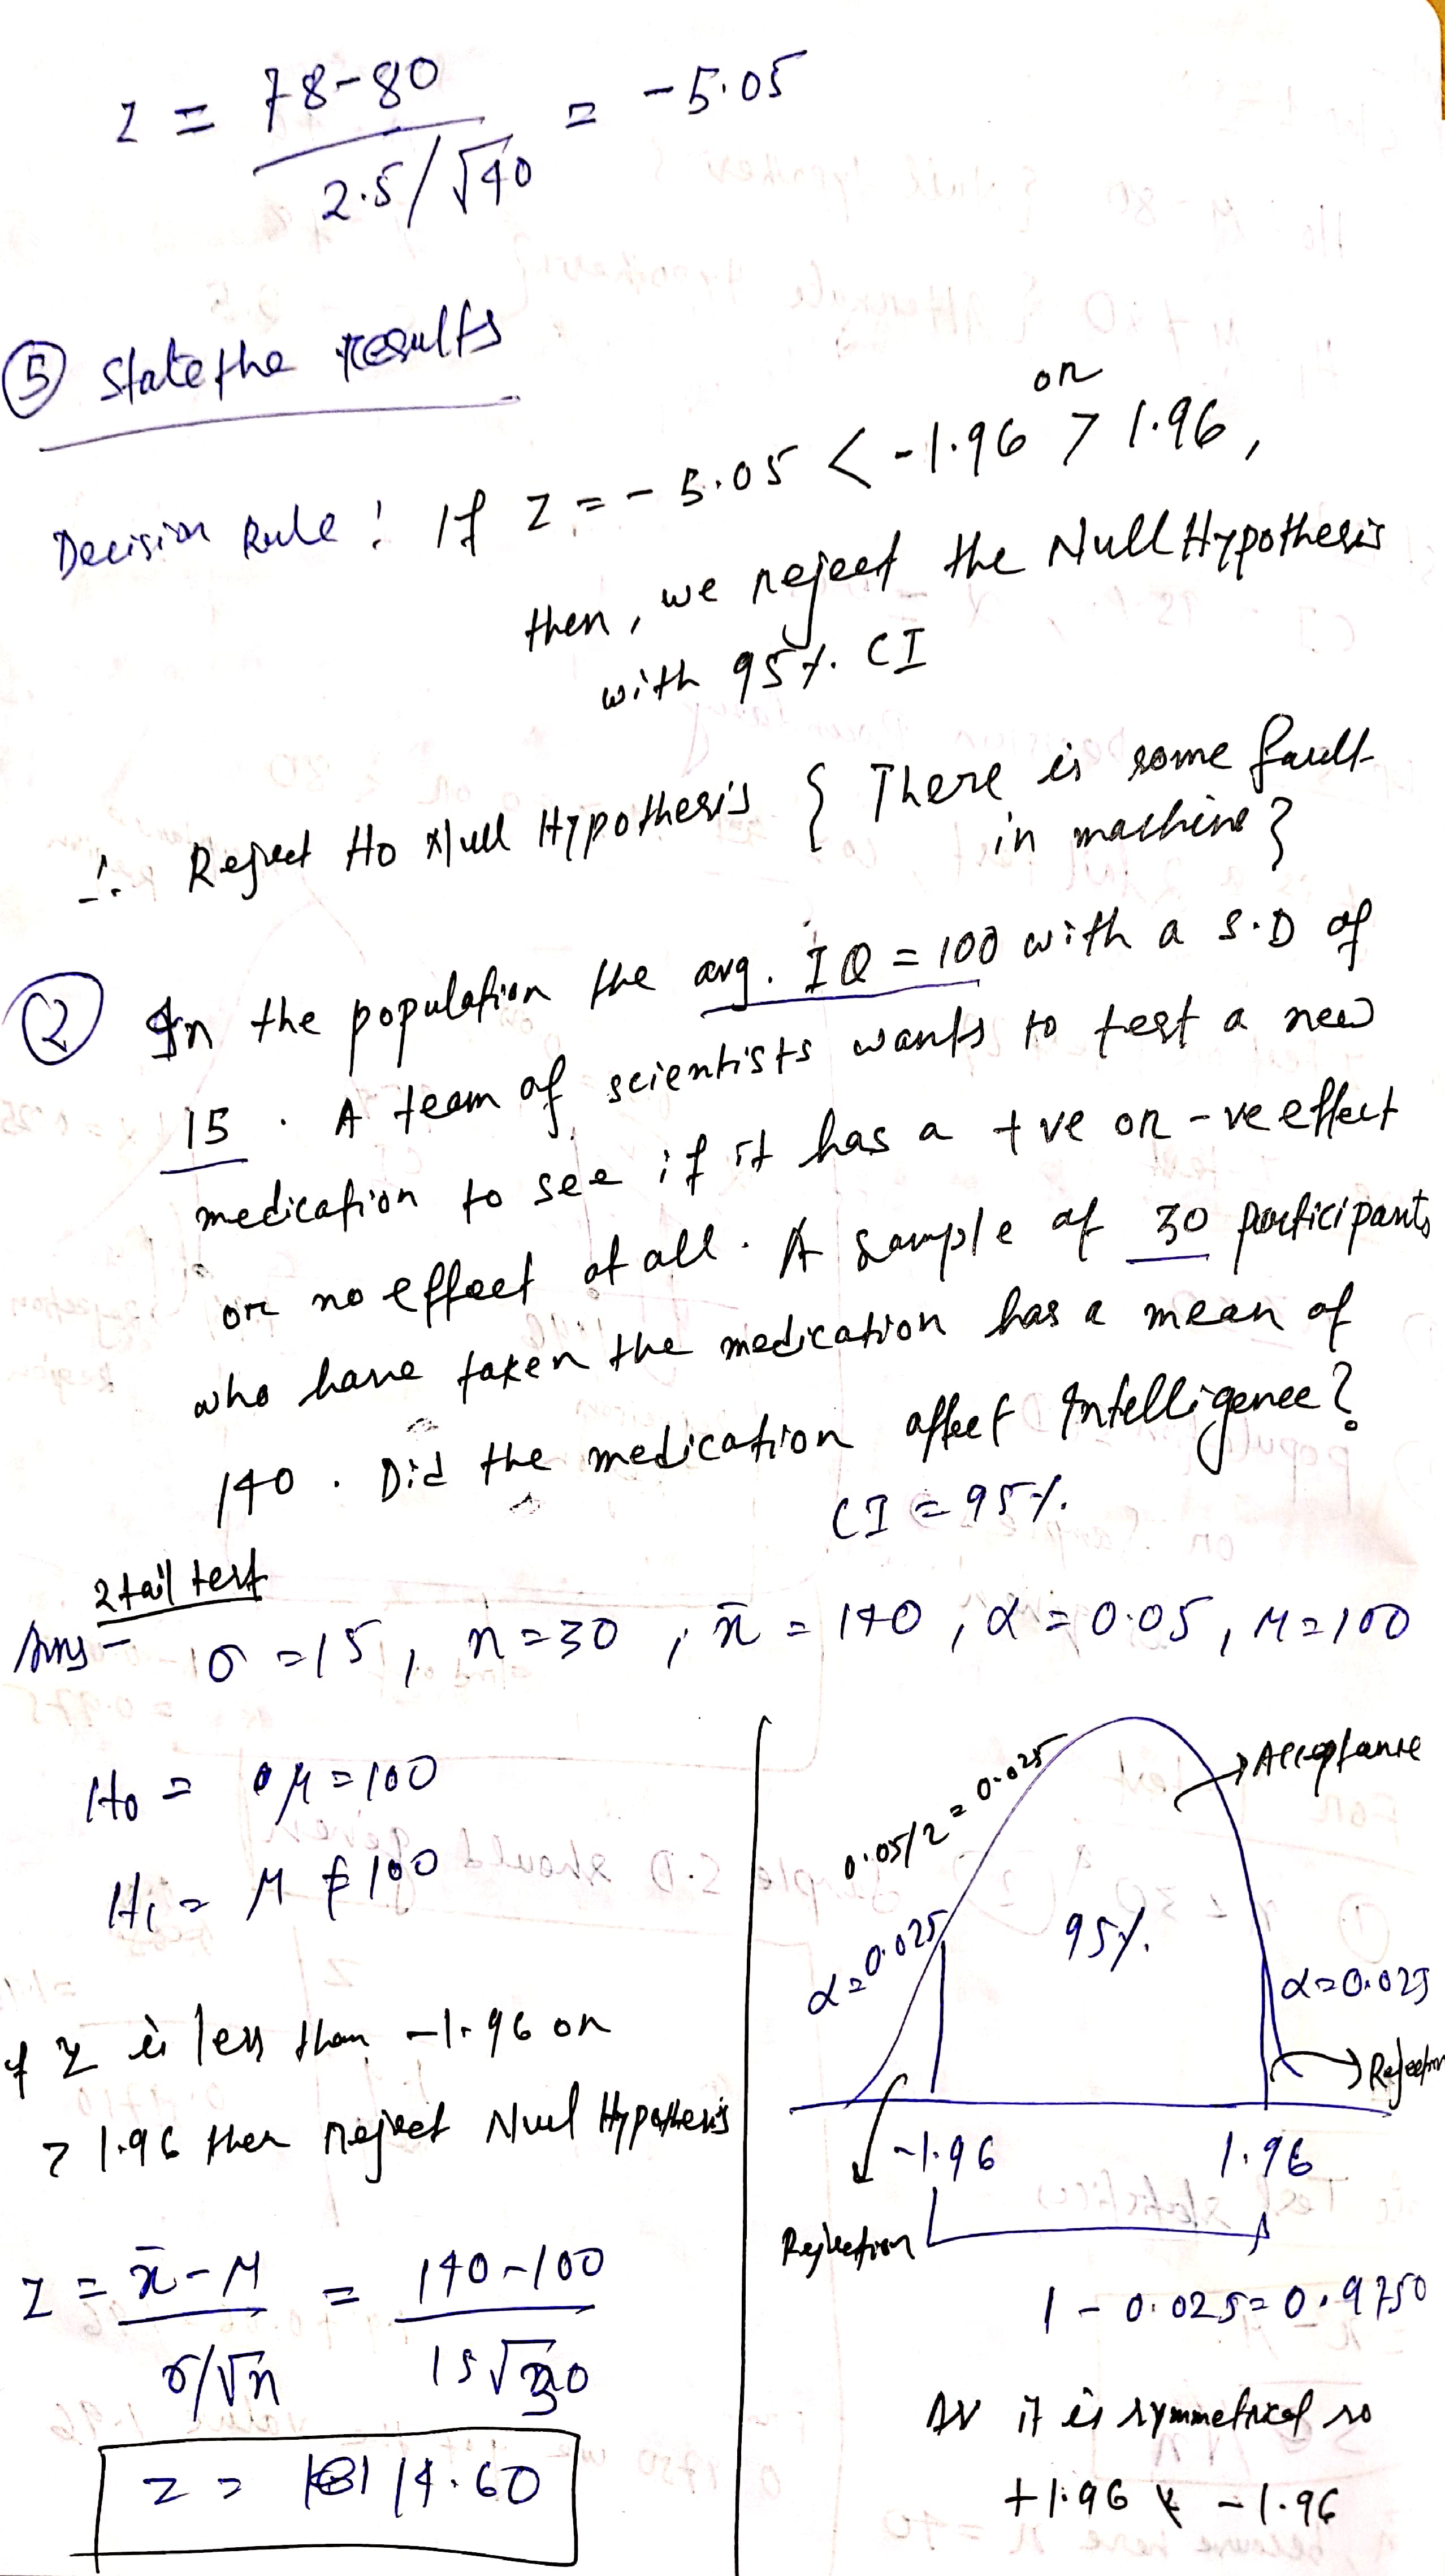 z = 78-80 / 2.5/√40 = -5.05
⑤ State the results
Decision Rule : If Z = -5.05 < -1.96 or > 1.96,
then, we reject the Null Hypothesis
with 95% CI
∴ Reject Ho Null Hypothesis { There is some fault
in machine }
② In the population the avg. IQ = 100 with a S.D of
15 . A team of scientists wants to test a new
medication to see if it has a +ve or -ve effect
or no effect at all. A sample of 30 participants
who have taken the medication has a mean of
140 . Did the medication affect Intelligence?
CI = 95%.
2 tail test
Ans - σ = 15, n = 30, x̄ = 140, α = 0.05, μ = 100
Ho = μ = 100
H1 = μ ≠ 100
if z is less than -1.96 or
> 1.96 then reject Null Hypothesis
Z = x̄ - μ / σ/√n = 140-100 / 15√30
z = 14.60
0.05/2 = 0.025
Acceptance
α = 0.025
95%.
α = 0.025
Rejection
-1.96
1.96
Rejection
1 - 0.025 = 0.9750
As it is symmetrical so
+1.96 & -1.96